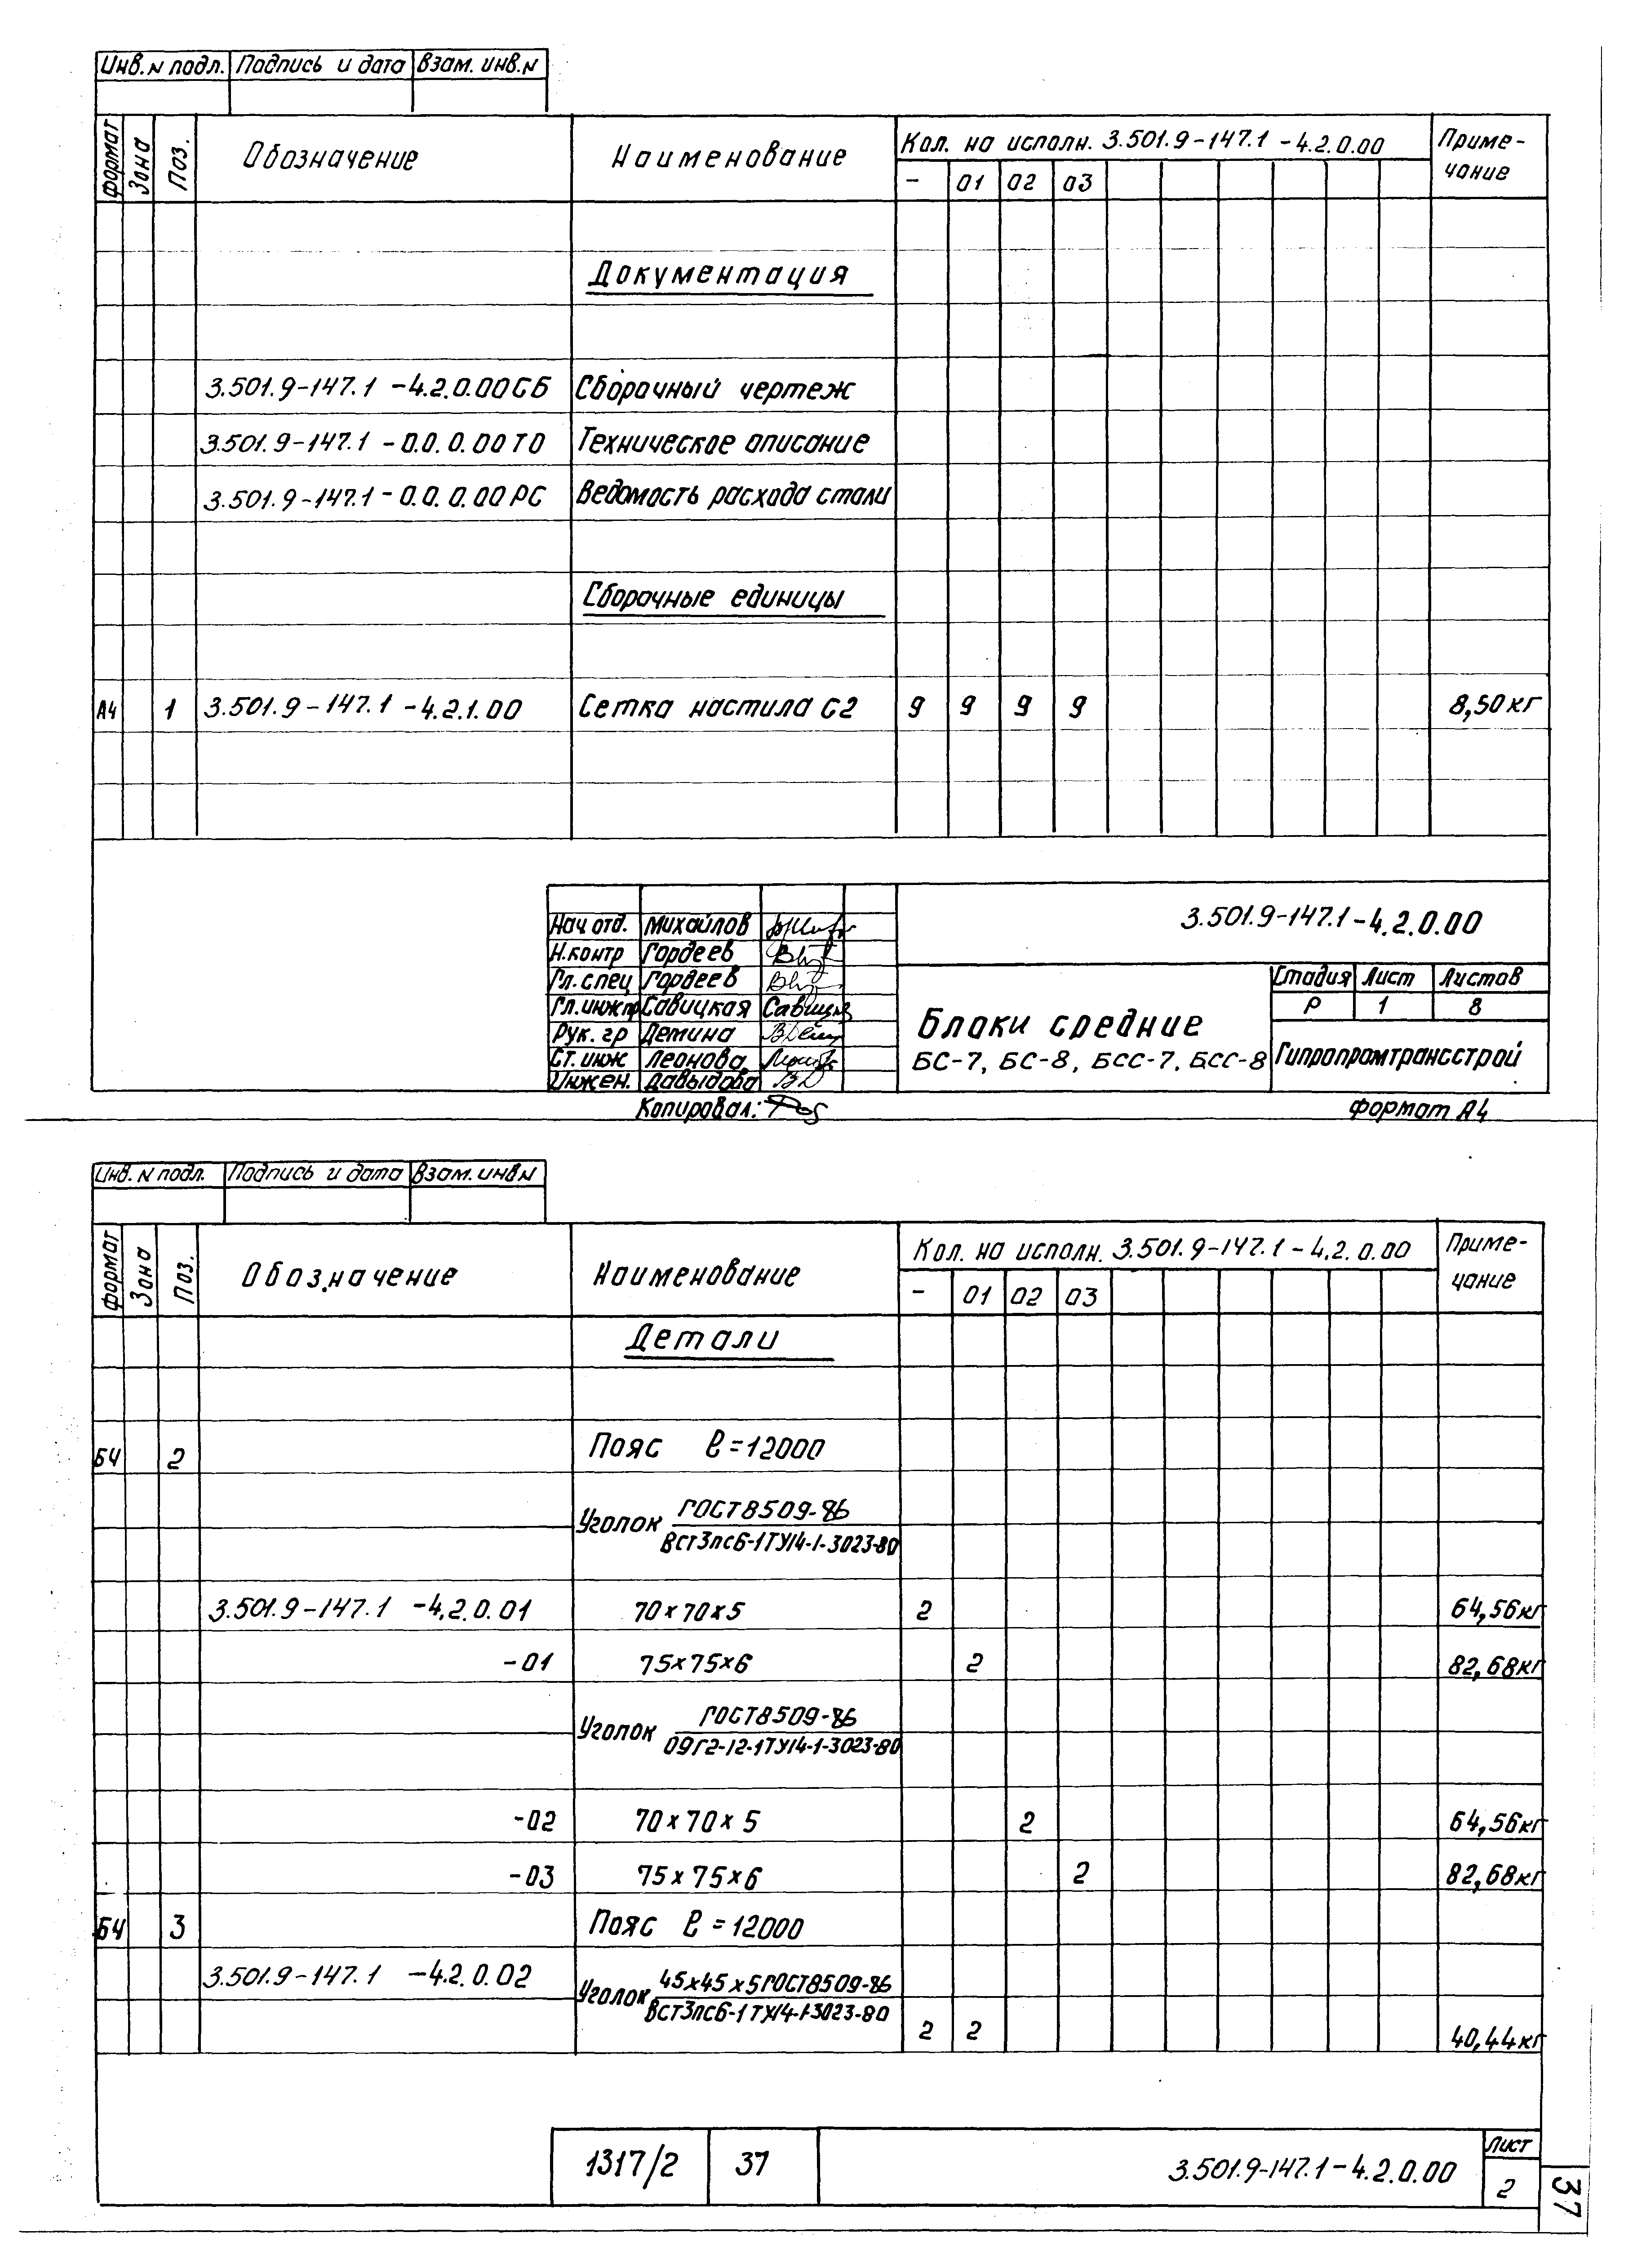 Инв. N подл. Подпись и дата Взам. инв. N
Формат Зона Поз. Обозначение Наименование Кол. на исполн. 3.501.9-147.1-4.2.0.00 Приме-
чание
- 01 02 03
Документация
3.501.9-147.1-4.2.0.00СБ Сборочный чертеж
3.501.9-147.1-0.0.0.00ТО Техническое описание
3.501.9-147.1-0.0.0.00РС Ведомость расхода стали
Сборочные единицы
А4 1 3.501.9-147.1-4.2.1.00 Сетка настила С2 9 9 9 9 8,50кг
3.501.9-147.1-4.2.0.00
Нач. отд. Михайлов
Н.контр Гордеев
Гл. спец Гордеев
Гл. инж.пр Савицкая
Рук. гр Демина
Ст. инж Леонова
Инжен. Давыдова
Блоки средние
БС-7, БС-8, БСС-7, БСС-8
Стадия Лист Листов
Р 1 8
Гипропромтрансстрой
Копировал: Формат А4
Инв. N подл. Подпись и дата Взам. инв. N
Формат Зона Поз. Обозначение Наименование Кол. на исполн. 3.501.9-147.1-4.2.0.00 Приме-
чание
- 01 02 03
Детали
БЧ 2 Пояс ℓ=12000
Уголок ГОСТ8509-86
ВСт3пс6-1ТУ14-1-3023-80
3.501.9-147.1-4.2.0.01 70×70×5 2 64,56кг
-01 75×75×6 2 82,68кг
Уголок ГОСТ8509-86
09Г2-12-1ТУ14-1-3023-80
-02 70×70×5 2 64,56кг
-03 75×75×6 2 82,68кг
БЧ 3 Пояс ℓ=12000
3.501.9-147.1-4.2.0.02 Уголок 45×45×5ГОСТ8509-86
ВСт3пс6-1ТУ14-1-3023-80
2 2 40,44кг
1317/2 37 3.501.9-147.1-4.2.0.00 Лист
2
37